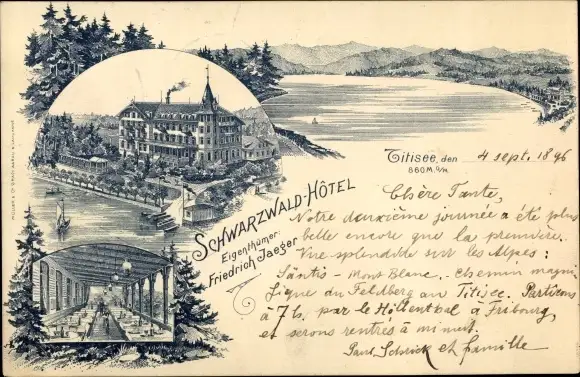 SCHWARZWALD-HÔTEL
Eigenthümer:
Friedrich Jaeger
Titisee, den 4 sept. 1896
860 M. ü/M.
Chère Tante,
Notre deuxième journée a été plus
belle encore que la première.
Vue splendide sur les Alpes:
Säntis - Mont Blanc. Chemin magni
fique du Feldberg au Titisee. Partirons
à 7h. par le Höllenthal à Fribourg,
et serons rentrés à minuit.
Paul et famille